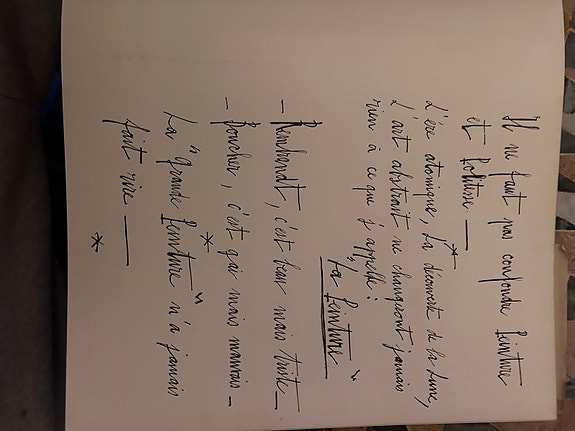 Il ne faut pas confondre Peinture
et Politesse —
*
L'ère atomique, la découverte de la Lune,
L'art abstrait ne changeront jamais
rien à ce que j'appelle :
"La Peinture"
- Rembrandt, c'est beau mais triste —
- Boucher, c'est gai mais mauvais —
*
La "Grande Peinture" n'a jamais
fait rire —
*